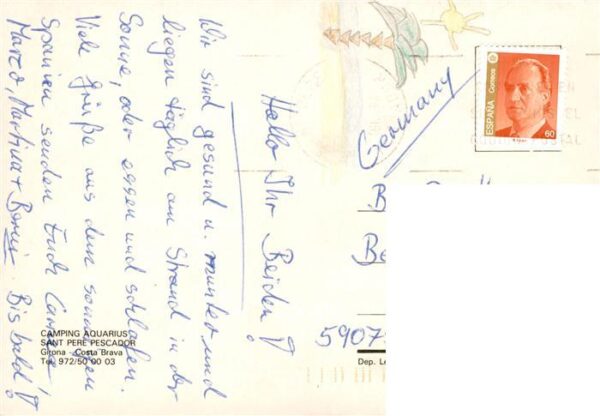 Hallo Ihr Beiden!
Wir sind gesund u. munter und
liegen täglich am Strand in der
Sonne, oder essen und schlafen.
Viele Grüße aus dem sonnigen
Spanien senden Euch
Marco, Martina + Bis bald!
Germany
B
Be
5907
ESPAÑA
Correos
60
CAMPING AQUARIUS
SANT PERE PESCADOR
Girona - Costa Brava
Tel. 972/50 00 03
Dep. Le